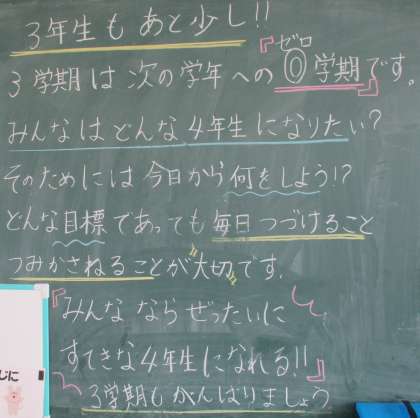 3年生も あと少し!!
3学期は次の学年への『0学期』です。
ゼロ
みんなはどんな4年生になりたい?
そのためには今日から何をしよう!?
どんな目標であっても毎日つづけること
つみかさねることが大切です。
『みんな ならぜったいに
すてきな4年生になれる!!』
3学期もがんばりましょう
じに